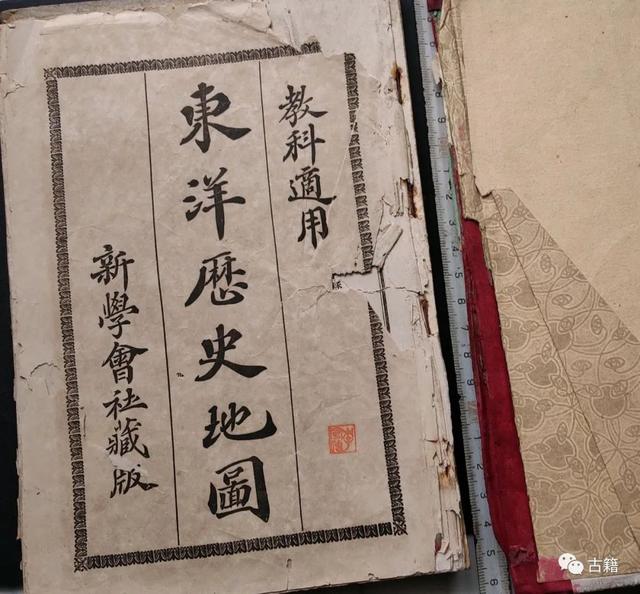 教科適用
東洋歷史地圖
新學會社藏版
古籍